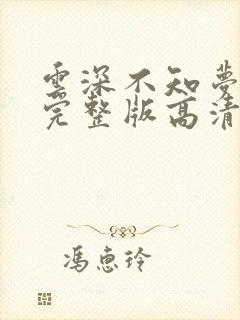 雲深不知夢
完整版高清
馮惠玲